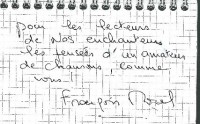 pour les lecteurs
de NOS enchanteurs
les pensées d'un amateur
de chansons, comme
vous !
François Morel